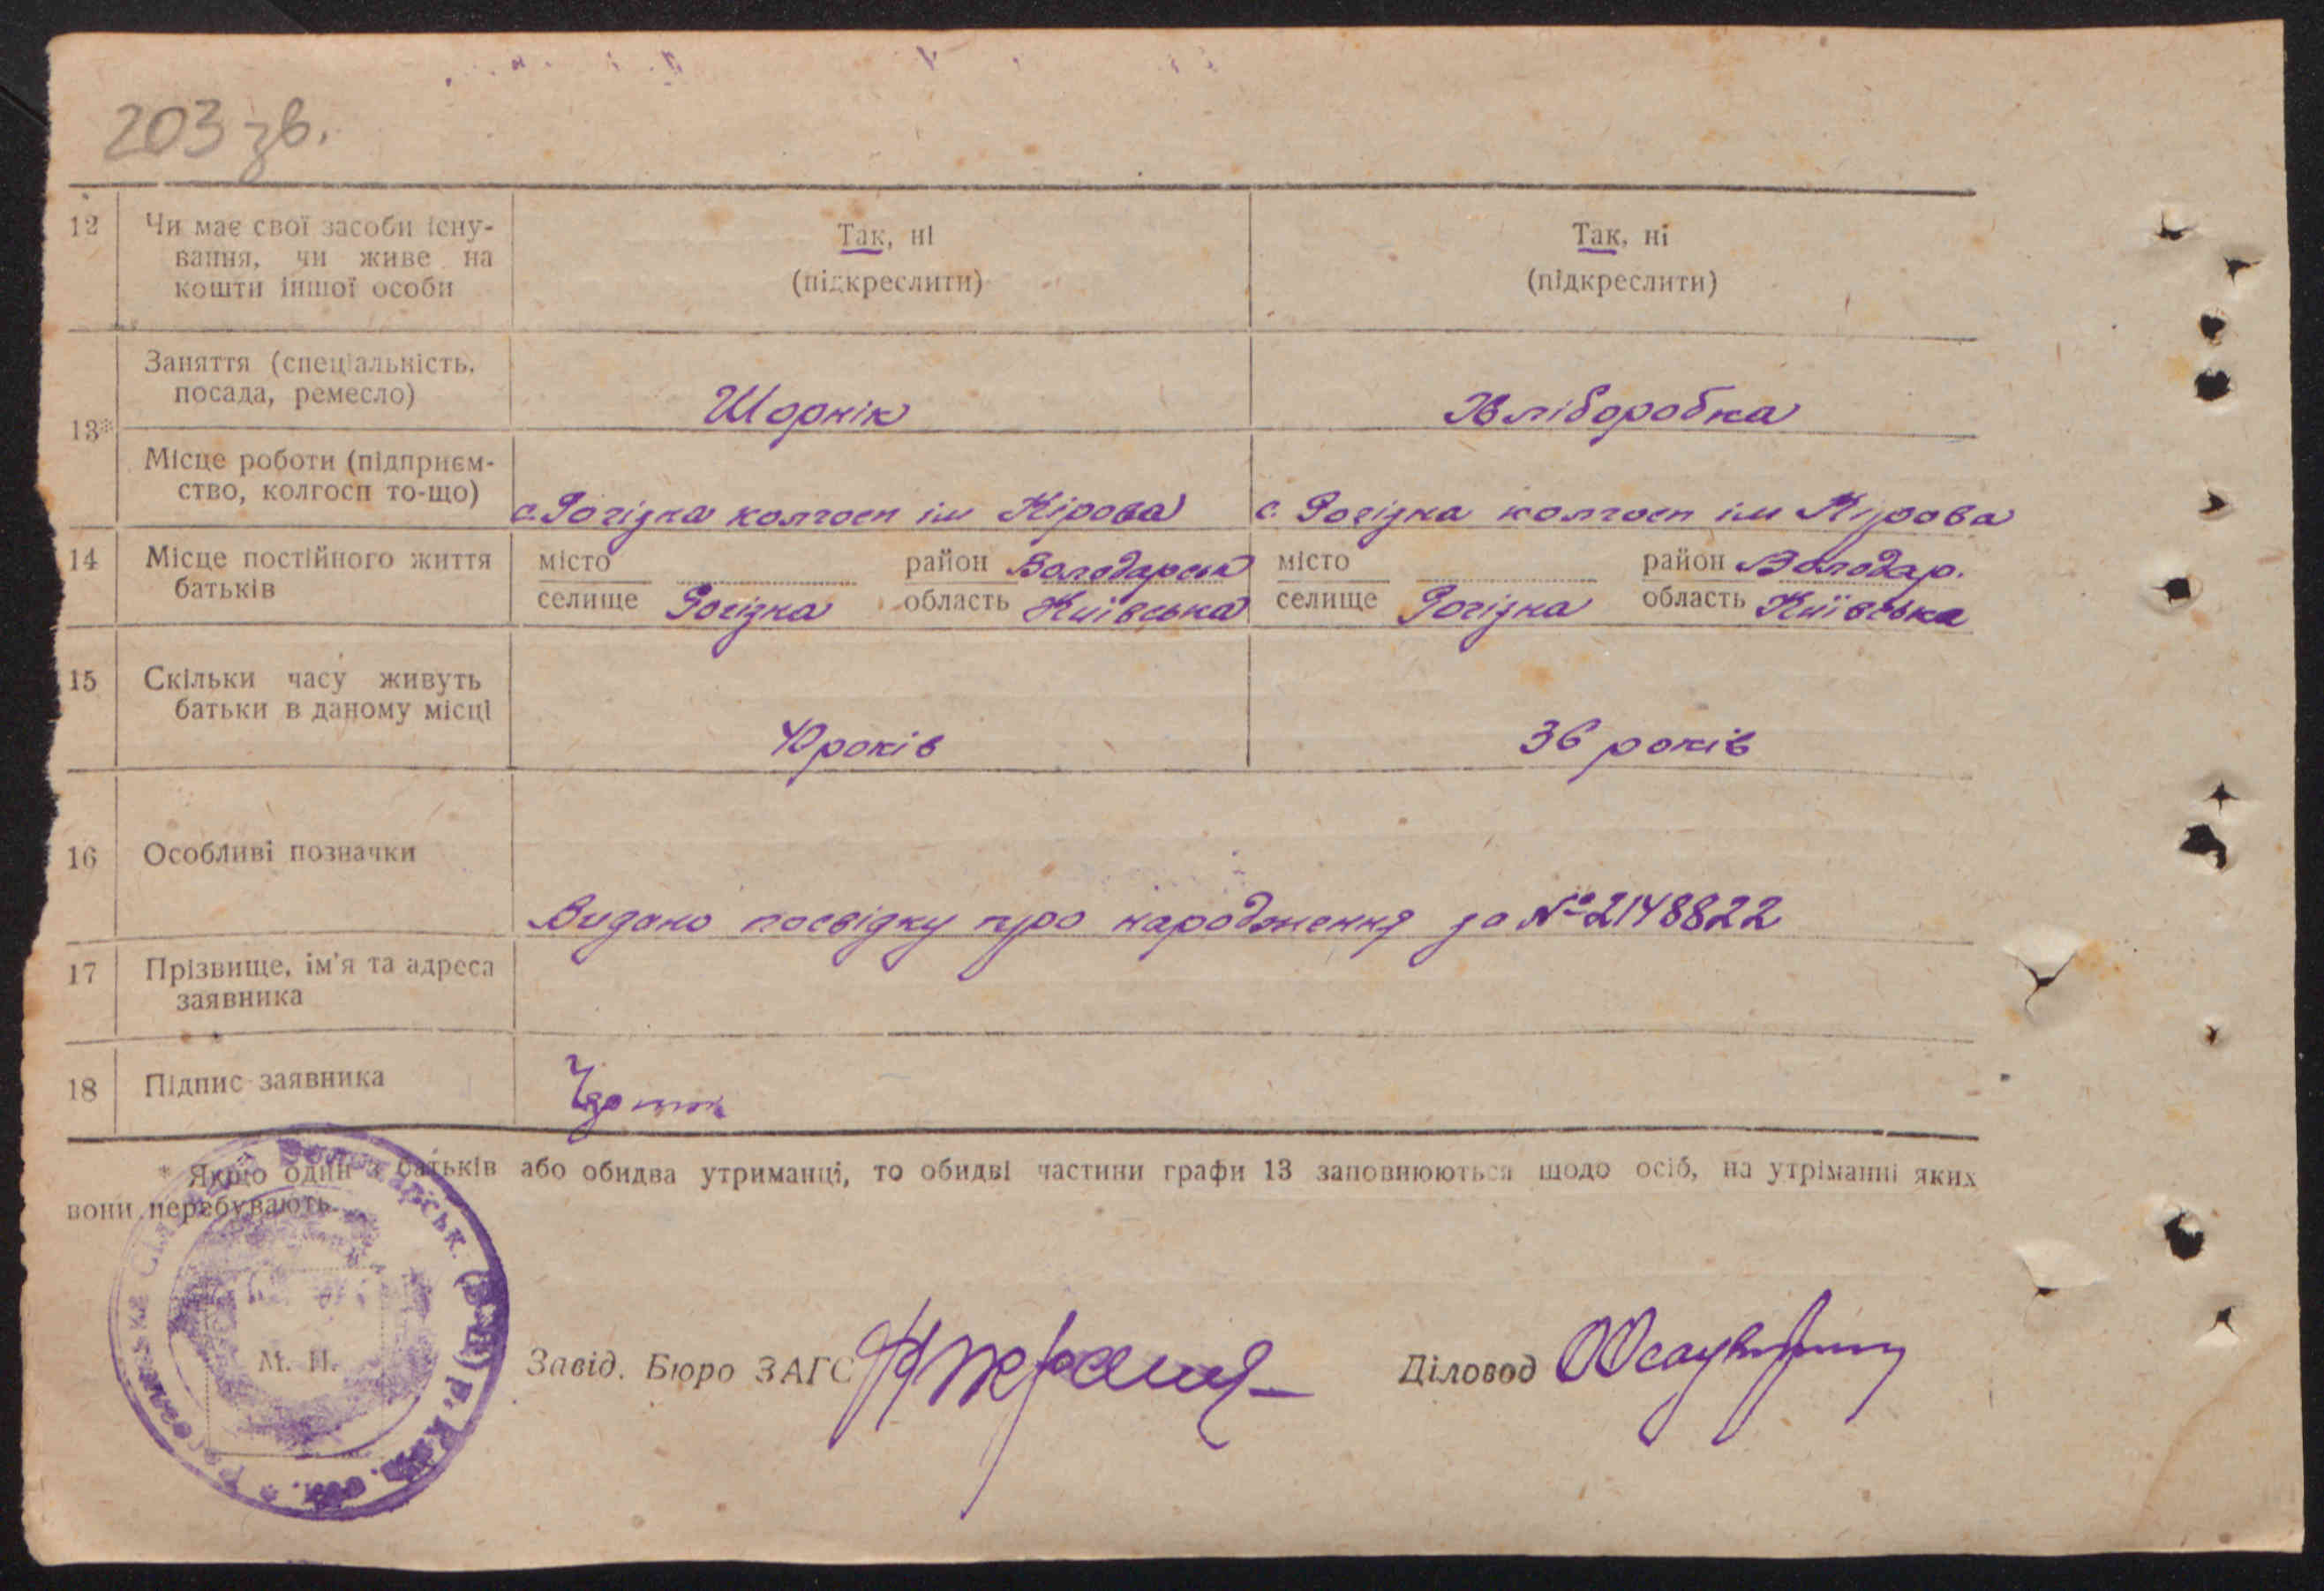 203 зв.
12 Чи має свої засоби існу- Так, ні Так, ні
вання, чи живе на (підкреслити) (підкреслити)
кошти іншої особи
Заняття (спеціальність,
посада, ремесло) Шорнік Хліборобка
13*
Місце роботи (підприєм-
ство, колгосп то-що) с. Рогізна колгосп ім Кірова с. Рогізна колгосп ім Кірова
14 Місце постійного життя місто район Володарськ місто район Володар.
батьків селище Рогізна область Київська селище Рогізна область Київська
15 Скільки часу живуть
батьки в даному місці 40 років 36 років
16 Особливі позначки
Видано посвідку про народження за № 2148822
17 Прізвище, ім'я та адреса
заявника
18 Підпис заявника
* Якщо один з батьків або обидва утриманці, то обидві частини графи 13 заповнюються щодо осіб, на утріманні яких
вони перебувають.
М. П.
Завід. Бюро ЗАГС Діловод